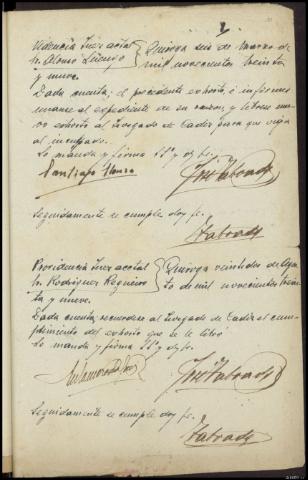 Providencia Juez acctal
Sr. Alonso
Quiroga seis de Marzo de
mil novecientos treinta
y nueve.
Dada cuenta; el precedente exhorto é informe
unanse al expediente de su razon, y líbrese nue-
vo exhorto al Juzgado de Cadiz para que se oiga
al inculpado.
Lo manda y firma Sª y doy fe.
Santiago Alonso
José Taboada
Seguidamente se cumple doy fe.
Taboada
Providencia Juez acctal
Sr. Rodriguez Regueiro
Quiroga veintidos de
de mil novecientos trein-
ta y nueve.
Dada cuenta recuerdese al Juzgado de Cadiz el cum-
plimiento del exhorto que se le libró
Lo manda y firma Sª y doy fe.
José Taboada
Seguidamente se cumple doy fe.
Taboada